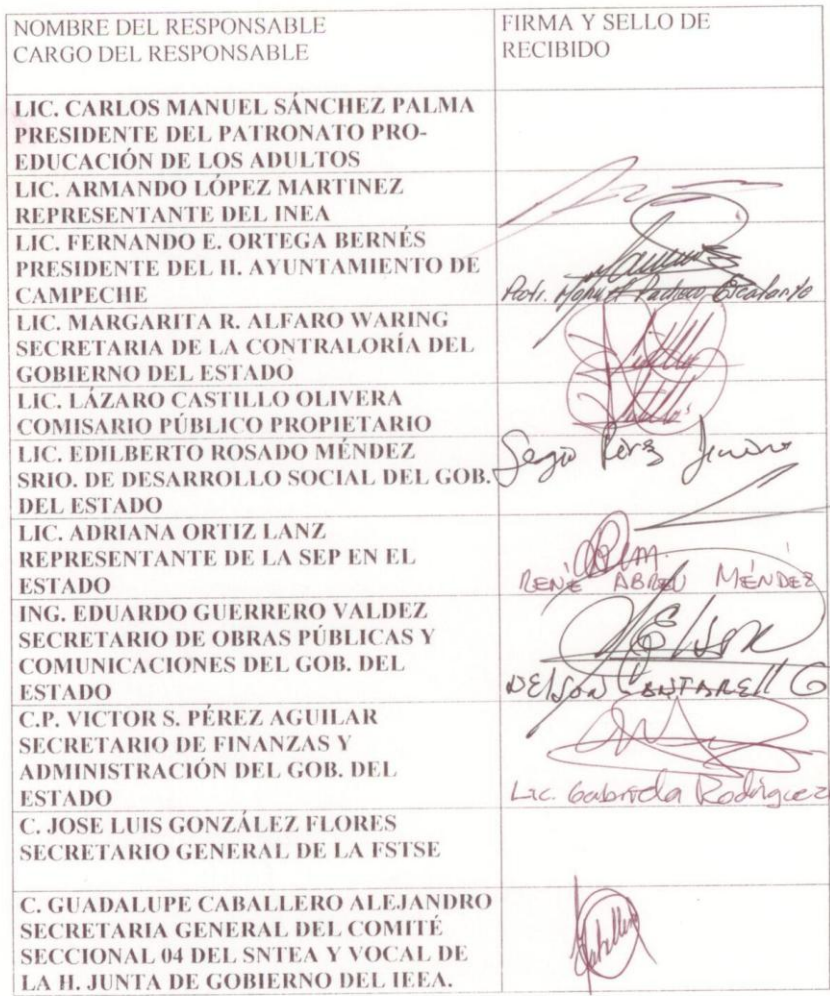 NOMBRE DEL RESPONSABLE
CARGO DEL RESPONSABLE
FIRMA Y SELLO DE
RECIBIDO
LIC. CARLOS MANUEL SÁNCHEZ PALMA
PRESIDENTE DEL PATRONATO PRO-
EDUCACIÓN DE LOS ADULTOS
LIC. ARMANDO LÓPEZ MARTINEZ
REPRESENTANTE DEL INEA
LIC. FERNANDO E. ORTEGA BERNÉS
PRESIDENTE DEL H. AYUNTAMIENTO DE
CAMPECHE
Manuel Pacheco Escalante
LIC. MARGARITA R. ALFARO WARING
SECRETARIA DE LA CONTRALORÍA DEL
GOBIERNO DEL ESTADO
LIC. LÁZARO CASTILLO OLIVERA
COMISARIO PÚBLICO PROPIETARIO
LIC. EDILBERTO ROSADO MÉNDEZ
SRIO. DE DESARROLLO SOCIAL DEL GOB.
DEL ESTADO
Sergio Pérez
LIC. ADRIANA ORTIZ LANZ
REPRESENTANTE DE LA SEP EN EL
ESTADO
RENÉ ABREU MÉNDEZ
ING. EDUARDO GUERRERO VALDEZ
SECRETARIO DE OBRAS PÚBLICAS Y
COMUNICACIONES DEL GOB. DEL
ESTADO
Nelson
NELSON CANTARELL G
C.P. VICTOR S. PÉREZ AGUILAR
SECRETARIO DE FINANZAS Y
ADMINISTRACIÓN DEL GOB. DEL
ESTADO
Lic. Gabriela Rodríguez
C. JOSE LUIS GONZÁLEZ FLORES
SECRETARIO GENERAL DE LA FSTSE
C. GUADALUPE CABALLERO ALEJANDRO
SECRETARIA GENERAL DEL COMITÉ
SECCIONAL 04 DEL SNTEA Y VOCAL DE
LA H. JUNTA DE GOBIERNO DEL IEEA.